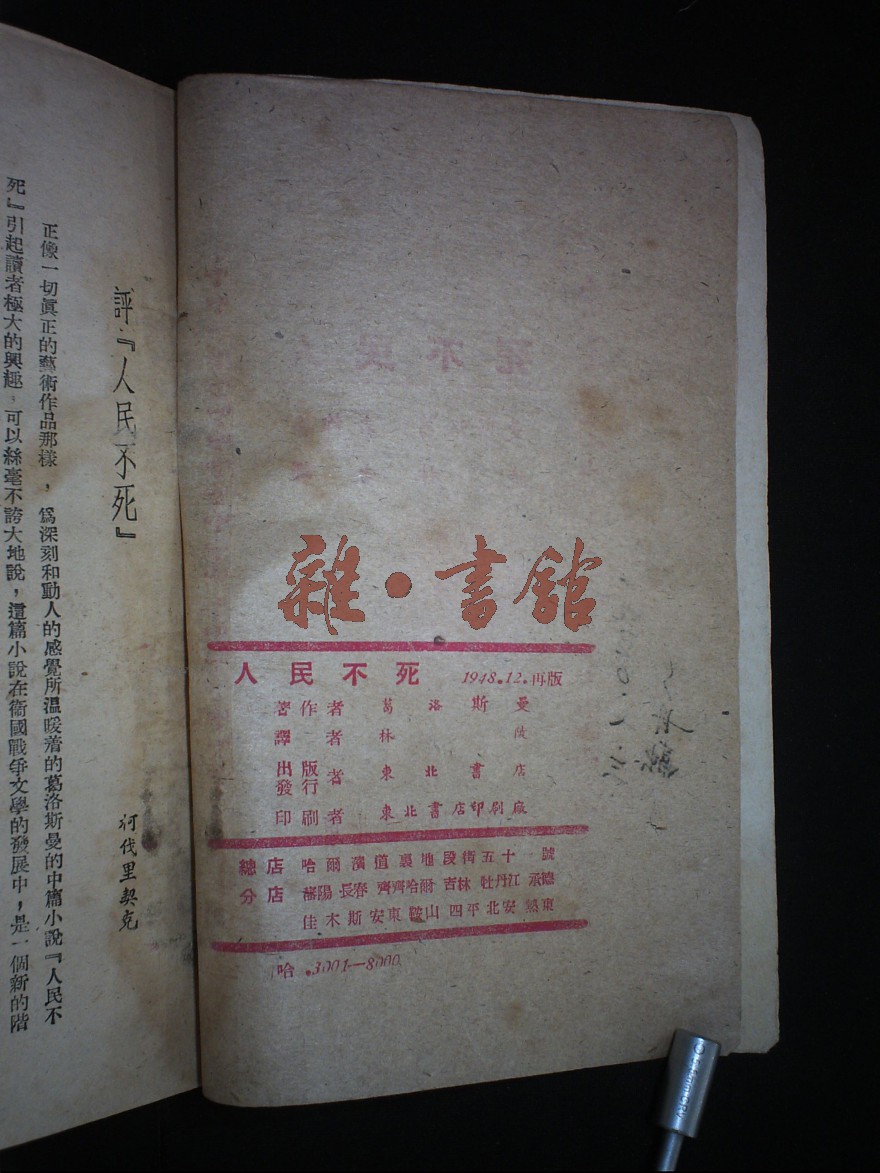 評『人民不死』
柯伐里契克
正像一切眞正的藝術作品那樣，爲深刻和動人的感覺所溫暖着的葛洛斯曼的中篇小說『人民不
死』引起讀者極大的興趣，可以絲毫不誇大地說，這篇小說在衞國戰爭文學的發展中，是一個新的階
雜·書館
人民不死 1948.12.再版
著作者 葛洛斯曼
譯者 林陵
出版發行者 東北書店
印刷者 東北書店印刷廠
總店 哈爾濱道裏地段街五十一號
分店 瀋陽 長春 齊齊哈爾 吉林 牡丹江 承德
佳木斯 安東 鞍山 四平 北安 冀東
哈.3001—8000